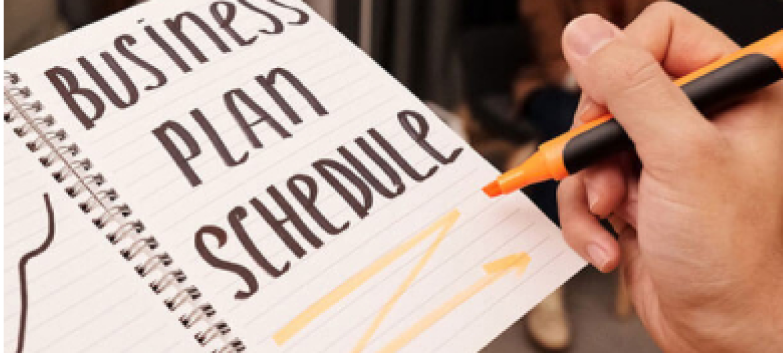 BUSINESS
PLAN
SCHEDULE